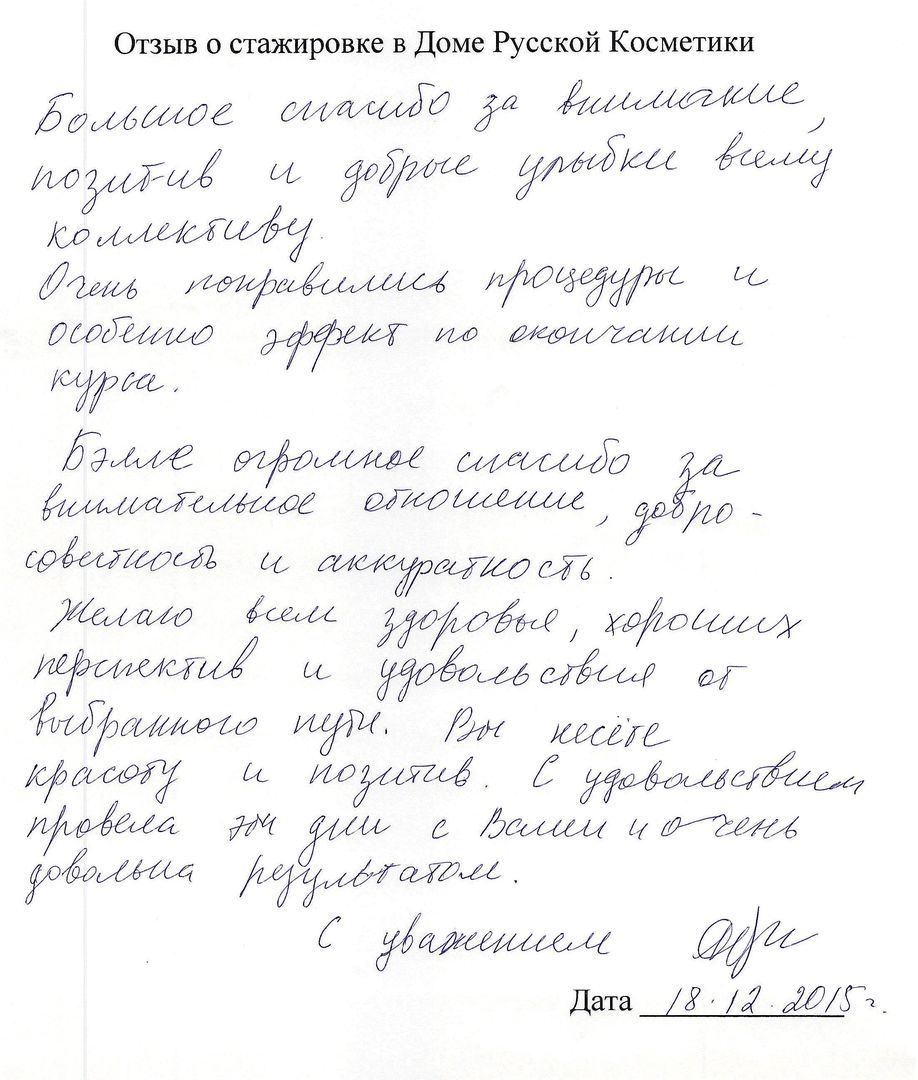 Отзыв о стажировке в Доме Русской Косметики
Большое спасибо за внимание,
позитив и добрые улыбки всему
коллективу.
Очень понравились процедуры и
особенно эффект по окончании
курса.
Бэлле огромное спасибо за
внимательное отношение, добро-
совестность и аккуратность.
Желаю всем здоровья, хороших
перспектив и удовольствия от
выбранного пути. Вы несёте
красоту и позитив. С удовольствием
провела эти дни с Вами и очень
довольна результатом.
С уважением
Дата 18.12.2015г.